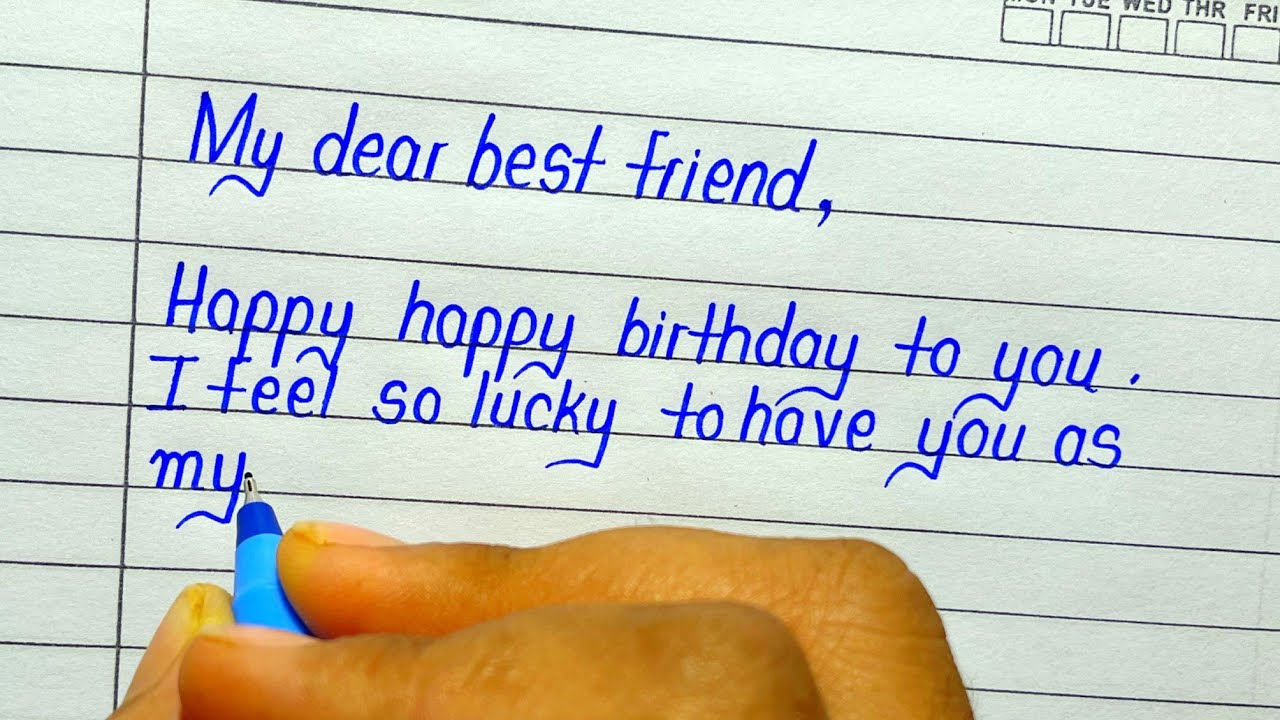 MON TUE WED THR FRI
My dear best friend,
Happy happy birthday to you.
I feel so lucky to have you as
my